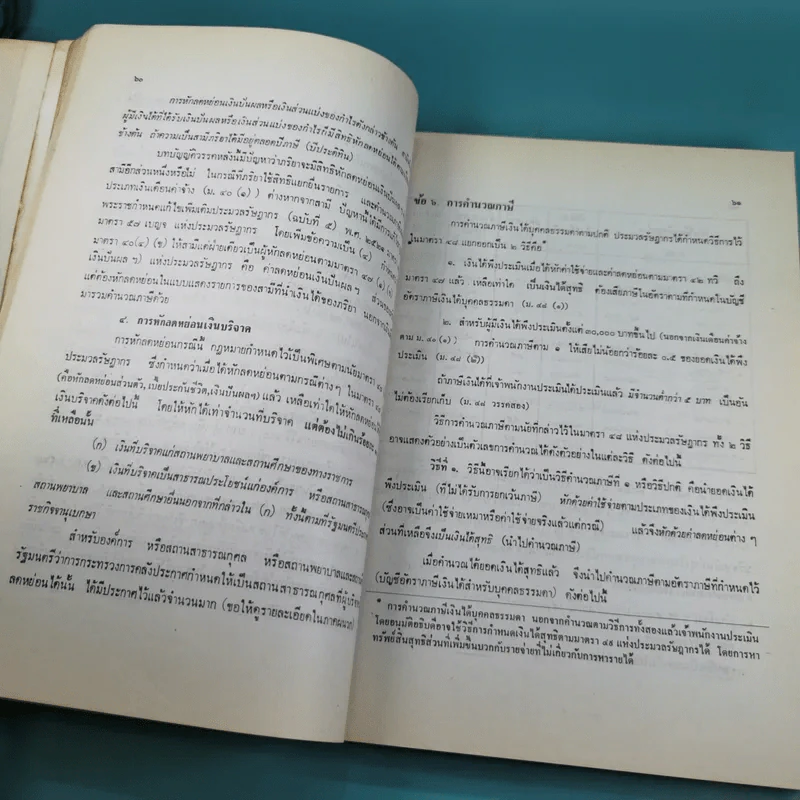 ๖๐
การหักลดหย่อนเงินปันผลหรือเงินส่วนแบ่งของกำไรดังกล่าวข้างต้น
ผู้มีเงินได้ที่ได้รับเงินปันผลหรือเงินส่วนแบ่งของกำไรก็มีสิทธิหักลดหย่อนได้
ข้างต้น ถ้าความเป็นสามีภริยาได้มีอยู่ตลอดปีภาษี (มีประติทิน)
บทบัญญัติวรรคหลังนี้มีปัญหาว่าภริยาจะมีสิทธิหักลดหย่อนเงินปันผล
สามีอีกส่วนหนึ่งหรือไม่ ในกรณีที่ภริยาใช้สิทธิแยกยื่นรายการ และคำนวณ
ประเภทเงินเดือนค่าจ้าง (ม. ๔๐ (๑)) ต่างหากจากสามี ปัญหานี้ได้มีการ
พระราชกำหนดแก้ไขเพิ่มเติมประมวลรัษฎากร (ฉบับที่ ๕) พ.ศ. ๒๕๒๑
มาตรา ๕๗ เบญจ แห่งประมวลรัษฎากร โดยเพิ่มข้อความเป็น (๔)
มาตรา ๔๐(๔) (ข) ให้สามีแต่ฝ่ายเดียวเป็นผู้หักลดหย่อนตามมาตรา ๔๗ (๑)
เงินปันผล ฯ) แห่งประมวลรัษฎากร คือ ค่าลดหย่อนเงินปันผล ฯ
แต่ต้องหักลดหย่อนในแบบแสดงรายการของสามีที่นำเงินได้ของภริยา นอกจากเงิน
มารวมคำนวณภาษีด้วย
๔. การหักลดหย่อนเงินบริจาค
การหักลดหย่อนกรณีนี้ กฎหมายกำหนดไว้เป็นพิเศษตามนัยมาตรา
ประมวลรัษฎากร ซึ่งกำหนดว่าเมื่อได้หักลดหย่อนตามกรณีต่าง ๆ ในมาตรา
(คือหักลดหย่อนส่วนตัว, เบี้ยประกันชีวิต, เงินปันผล ฯ) แล้ว เหลือเท่าใดให้หักลดหย่อน
เงินบริจาคดังต่อไปนี้ โดยให้หักได้เท่าจำนวนที่บริจาค แต่ต้องไม่เกินร้อยละ
ที่เหลือนั้น
(ก) เงินที่บริจาคแก่สถานพยาบาลและสถานศึกษาของทางราชการ
(ข) เงินที่บริจาคเป็นสาธารณประโยชน์แก่องค์การ หรือสถานสาธารณกุศล
สถานพยาบาล และสถานศึกษาอื่นนอกจากที่กล่าวใน (ก) ทั้งนี้ตามที่รัฐมนตรีประกาศ
ราชกิจจานุเบกษา
สำหรับองค์การ หรือสถานสาธารณกุศล หรือสถานพยาบาลและสถาน
รัฐมนตรีว่าการกระทรวงการคลังประกาศกำหนดให้เป็นสถานสาธารณกุศลที่ผู้บริจาค
ลดหย่อนได้นั้น ได้มีประกาศไว้แล้วจำนวนมาก (ขอให้ดูรายละเอียดในภาคผนวก)
๖๑
ข้อ ๖. การคำนวณภาษี
การคำนวณภาษีเงินได้บุคคลธรรมดาตามปกติ ประมวลรัษฎากรได้กำหนดวิธีการไว้
ในมาตรา ๔๘ แยกออกเป็น ๒ วิธีคือ*
๑. เงินได้พึงประเมินเมื่อได้หักค่าใช้จ่ายและค่าลดหย่อนตามมาตรา ๔๒ ทวิ ถึง
มาตรา ๔๗ แล้ว เหลือเท่าใด เป็นเงินได้สุทธิ ต้องเสียภาษีในอัตราตามที่กำหนดในบัญชี
อัตราภาษีเงินได้บุคคลธรรมดา (ม. ๔๘ (๑))
๒. สำหรับผู้มีเงินได้พึงประเมินตั้งแต่ ๓๐,๐๐๐ บาทขึ้นไป (นอกจากเงินเดือนค่าจ้าง
ตาม ม. ๔๐ (๑)) การคำนวณภาษีตาม ๑ ให้เสียไม่น้อยกว่าร้อยละ ๐.๕ ของยอดเงินได้พึง
ประเมิน (ม. ๔๘ (๒))
ถ้าภาษีเงินได้ที่เจ้าพนักงานประเมินได้ประเมินแล้ว มีจำนวนต่ำกว่า ๕ บาท เป็นอัน
ไม่ต้องเรียกเก็บ (ม. ๔๘ วรรคสอง)
วิธีการคำนวณภาษีตามนัยที่กล่าวไว้ในมาตรา ๔๘ แห่งประมวลรัษฎากร ทั้ง ๒ วิธี
อาจแสดงตัวอย่างเป็นตัวเลขการคำนวณได้ดังตัวอย่างในแต่ละวิธี ดังต่อไปนี้
วิธีที่ ๑. วิธีนี้อาจเรียกได้ว่าเป็นวิธีคำนวณภาษีที่ ๑ หรือวิธีปกติ คือนำยอดเงินได้
พึงประเมิน (ที่ไม่ได้รับการยกเว้นภาษี) หักด้วยค่าใช้จ่ายตามประเภทของเงินได้พึงประเมิน
(ซึ่งอาจเป็นค่าใช้จ่ายเหมาหรือค่าใช้จ่ายจริงแล้วแต่กรณี) แล้วจึงหักด้วยค่าลดหย่อนต่าง ๆ
ส่วนที่เหลือจึงเป็นเงินได้สุทธิ (นำไปคำนวณภาษี)
เมื่อคำนวณได้ยอดเงินได้สุทธิแล้ว จึงนำไปคำนวณภาษีตามอัตราภาษีที่กำหนดไว้
(บัญชีอัตราภาษีเงินได้สำหรับบุคคลธรรมดา) ดังต่อไปนี้
* การคำนวณภาษีเงินได้บุคคลธรรมดา นอกจากคำนวณตามวิธีการทั้งสองแล้วเจ้าพนักงานประเมิน
โดยอนุมัติอธิบดีอาจใช้วิธีการกำหนดเงินได้สุทธิตามมาตรา ๔๙ แห่งประมวลรัษฎากรได้ โดยการหา
ทรัพย์สินสุทธิส่วนที่เพิ่มขึ้นบวกกับรายจ่ายที่ไม่เกี่ยวกับการหารายได้